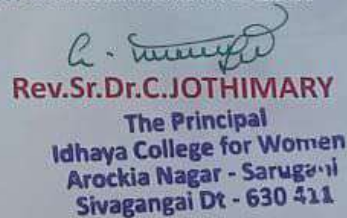 Rev.Sr.Dr.C.JOTHIMARY
The Principal
Idhaya College for Women
Arockia Nagar - Sarugani
Sivagangai Dt - 630 411